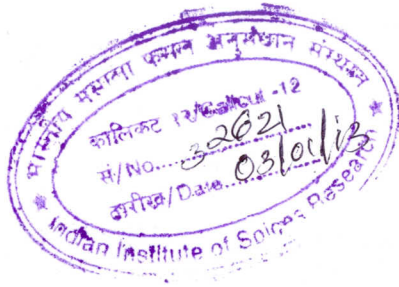 भारतीय मसाला फसल अनुसंधान संस्थान
कालिकट १२/Calicut -12
सं/No.....32621
तारीख/Date.....03/01/13
Indian Institute of Spices Research